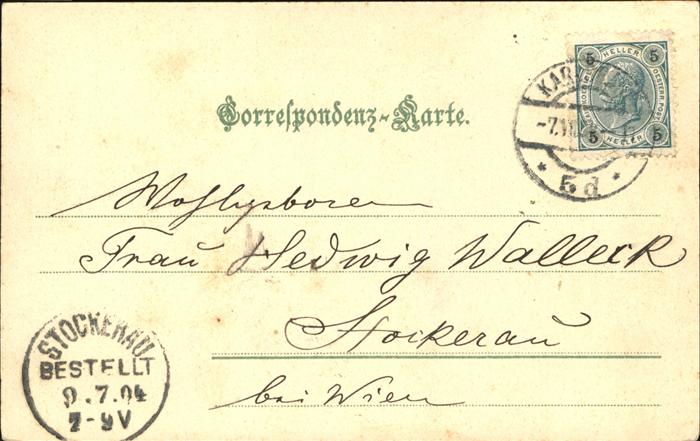 5 HELLER 5
5 HELLER 5
KAR
-7.VII
5d
Correspondenz-Karte.
Wohlgeboren
Frau Hedwig Walleck
Stockerau
bei Wien
STOCKERAU
BESTELLT
9.7.04
7-9V